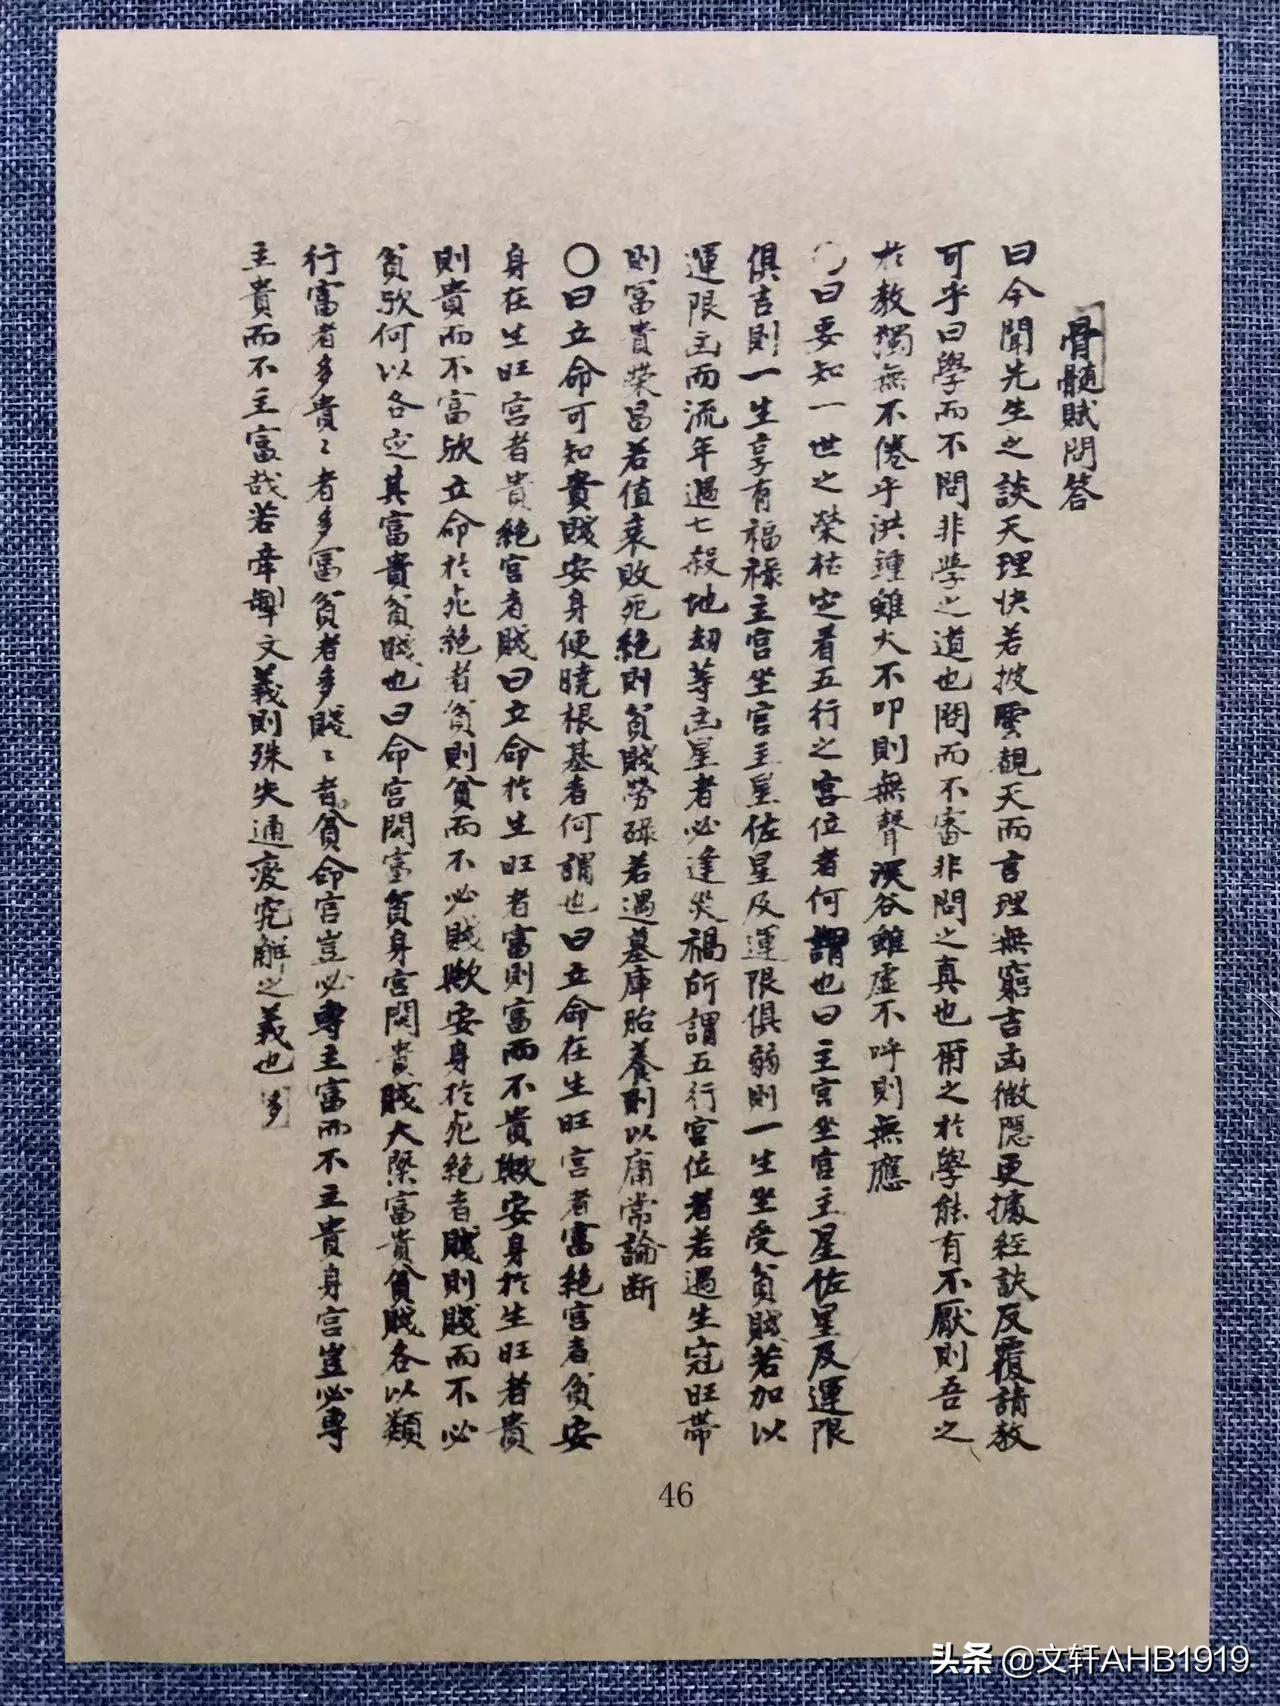 骨髓賦問答
曰今聞先生之談天理快若披雲覩天而言理無窮吉凶微隱更據經訣反覆請教
可乎曰學而不問非學之道也問而不審非問之真也爾之於學能有不厭則吾之
於教獨無不倦乎洪鍾雖大不叩則無聲溪谷雖虛不呼則無應
〇曰要知一世之榮枯定看五行之宮位者何謂也曰主宮坐宮主星佐星及運限
俱吉則一生享有福祿主宮坐宮主星佐星及運限俱弱則一生坐受貧賤若加以
運限凶而流年遇七殺地刼等凶星者必逢災禍所謂五行宮位者若遇生冠旺帶
則富貴榮昌若值衰敗死絕則貧賤勞碌若遇墓庫胎養則以庸常論斷
〇曰立命可知貴賤安身便曉根基者何謂也曰立命在生旺宮者富絕宮者貧安
身在生旺宮者貴絕宮者賤曰立命於生旺者富則富而不貴歟安身於生旺者貴
則貴而不富歟立命於死絕者貧則貧而不必賤歟安身於死絕者賤則賤而不必
貧歟何以各定其富貴貧賤也曰命宮関富貧身宮関貴賤大槩富貴貧賤各以類
行富者多貴〻者多富貧者多賤〻者貧命宮豈必專主富而不主貴身宮豈必專
主貴而不主富哉若牽文義則殊失通変究解之義也 多
46
头条 @文轩AHB1919